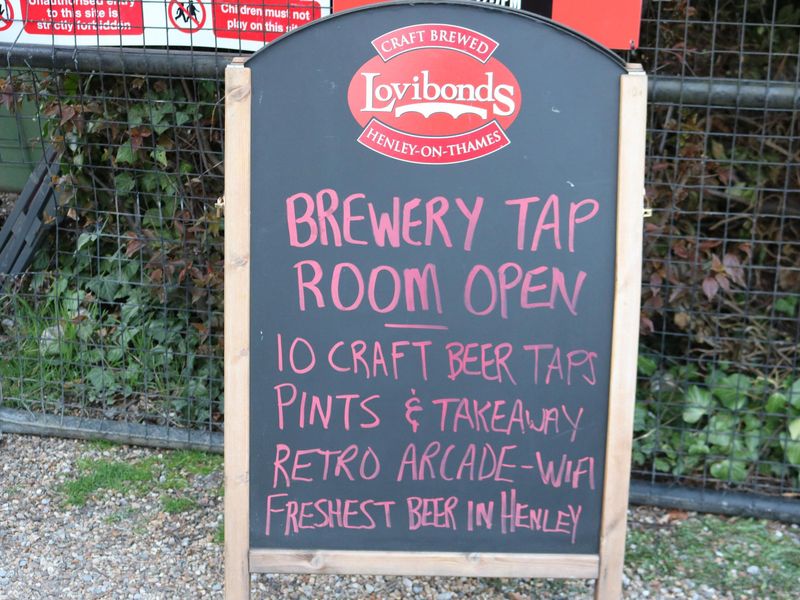 Unauthorised entry
to this site is
strictly forbidden
Children must not
play on this
CRAFT BREWED
Lovibonds
HENLEY-ON-THAMES
BREWERY TAP
ROOM OPEN
10 CRAFT BEER TAPS
PINTS & TAKEAWAY
RETRO ARCADE-WIFI
FRESHEST BEER IN HENLEY